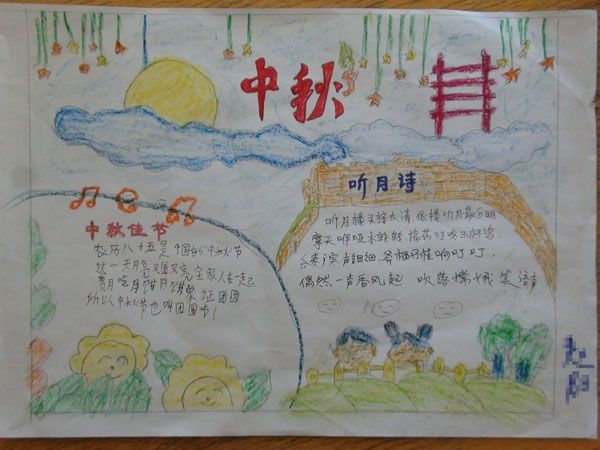 中秋
中秋佳节
农历八十五是中国的中秋节
这一天月亮又又亮全家人在一起
赏月吃月饼月饼象征团圆
所以中秋节也叫团圆节！
听月诗
听月楼头接太清 依楼听月最分明
摩天咿哑冰轮转，捣药叮咚玉杵鸣
乐奏广寒声细细，斧柯丹桂响叮叮，
偶然一声香风起 吹落嫦娥笑语声